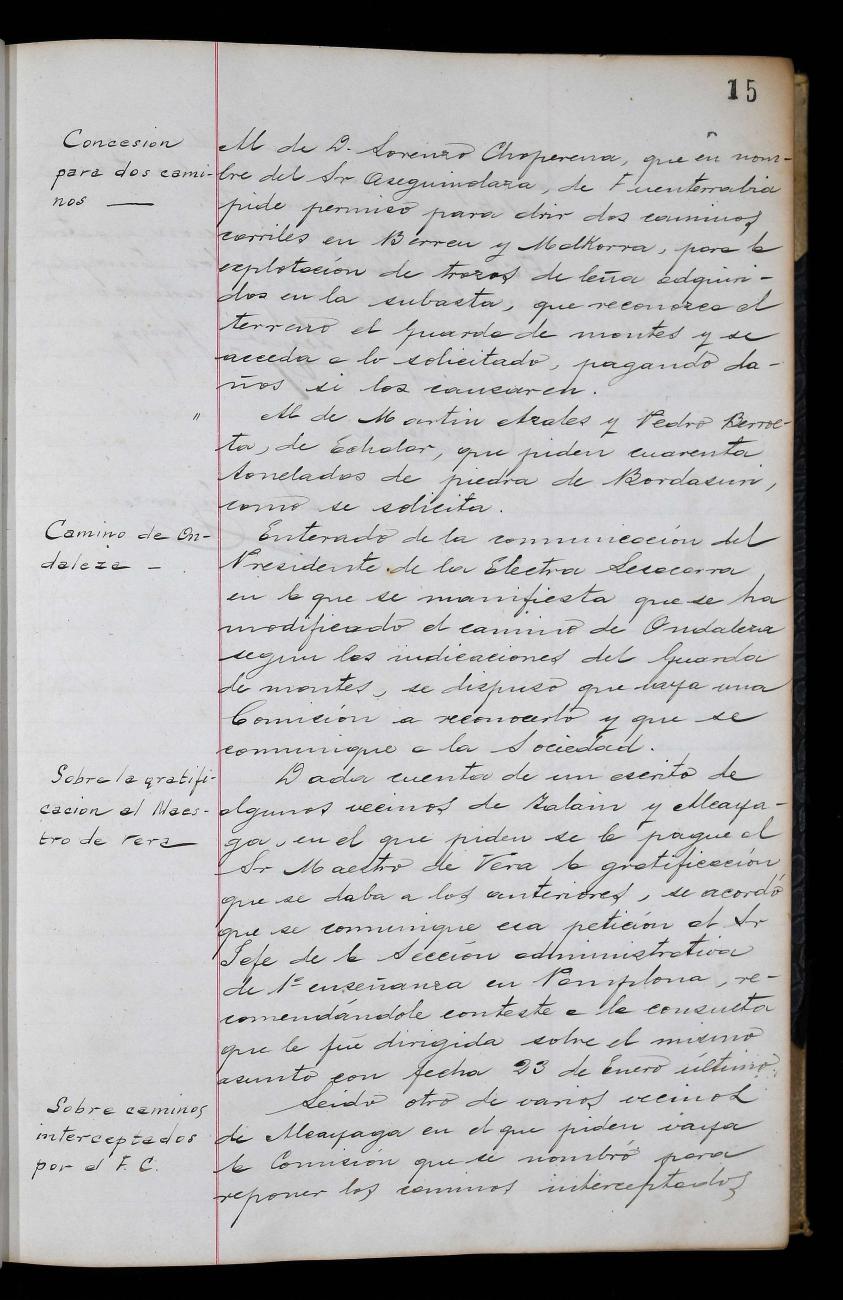 15
Concesión
para dos cami-
nos —
Al de D. Lorenzo Choperena, que en nom-
bre del Sr Oseguindaza, de Fuenterrabia
pide permiso para abrir dos caminos
carriles en Berreu y Malkorra, para la
explotación de trozos de leña adquiri-
dos en la subasta, que reconozca el
terreno el Guarda de montes y se
acceda a lo solicitado, pagando da-
ños si los causaren.
"
Al de Martin Azales y Pedro Berroe-
ta, de Echalar, que piden cuarenta
toneladas de piedra de Bordasuri,
como se solicita.
Camino de On-
daleza -
Enterado de la comunicación del
Presidente de la Electra Sesacarra
en la que se manifiesta que se ha
modificado el camino de Ondaleza
segun las indicaciones del Guarda
de montes, se dispuso que vaya una
Comisión a reconocerlo y que se
comunique a la Sociedad.
Sobre la gratifi-
cacion al Maes-
tro de Vera
Dada cuenta de un escrito de
algunos vecinos de Zalain y Alcaya-
ga, en el que piden se le pague al
Sr Maestro de Vera la gratificación
que se daba a los anteriores, se acordó
que se comunique esa petición al Sr
Jefe de la Sección administrativa
de 1ª enseñanza en Pamplona, re-
comendándole conteste a la consulta
que le fue dirigida sobre el mismo
asunto con fecha 23 de Enero último.
Sobre caminos
interceptados
por el F. C.
Leido otro de varios vecinos
de Alcayaga en el que piden vaya
la Comisión que se nombró para
reponer los caminos interceptados